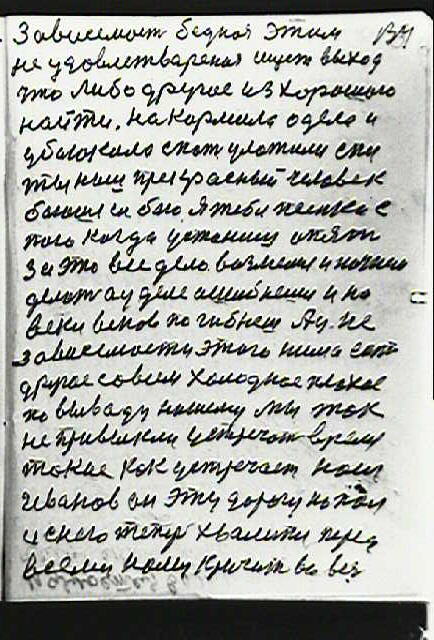 Зависемост бедная этим
не удовлетвареная ищет выход
что либо другое из хорошого
найти. накормила одела и
убаюкала спат уложили спи
ты наш прекрасный человек
баюси баю. я тебя песнкой с
того когда устаниш опят
за это все дело возмеш и начнеш
делат а у деле ошибнеш и на
веки веков погибнеш Ау. не
зависемости этого нима ест
другое совсем холодное плохое
по вываду нашему мы так
не привыкли устречат время
такое как устречает наш
Иванов он эту дорогу
и снего теперь хвалити перед
всеми нами кричит во вез